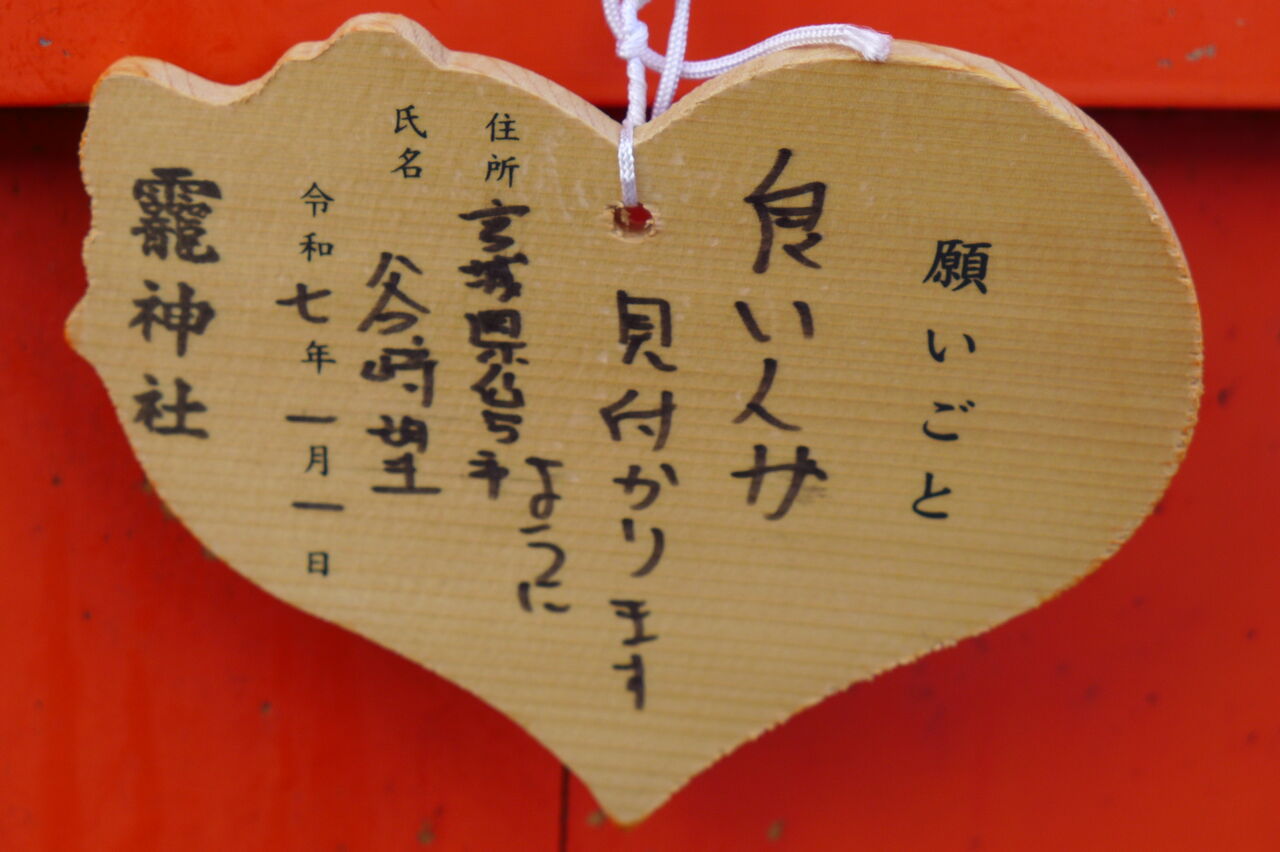 願いごと
良い人サ
見付かります
ように
住所 宮城県仙台市
氏名 谷崎望
令和七年一月一日
龗神社